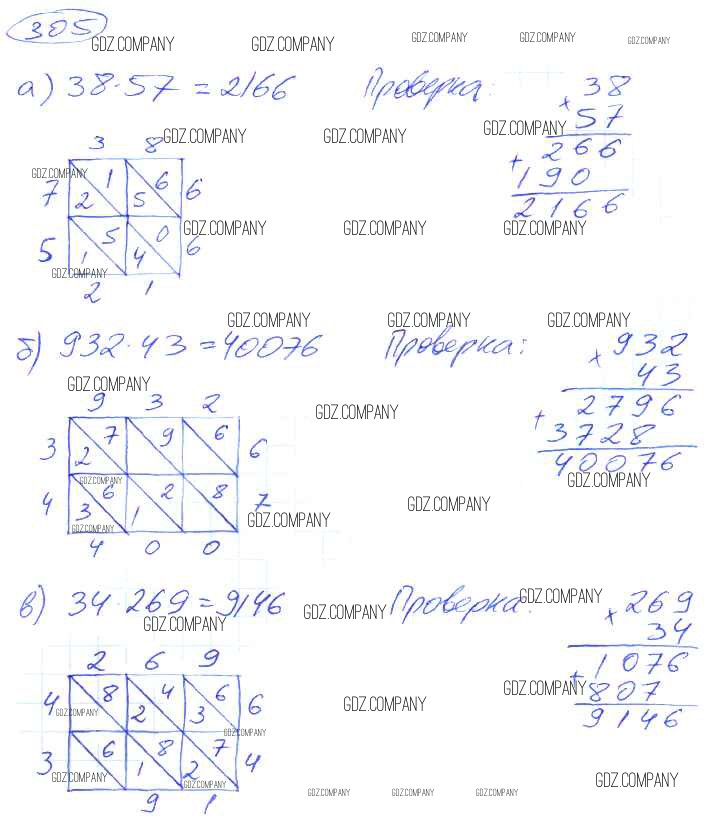 305
GDZ.COMPANY GDZ.COMPANY GDZ.COMPANY GDZ.COMPANY GDZ.COMPANY
а) 38·57 = 2166 Проверка: 38
× 57
GDZ.COMPANY GDZ.COMPANY GDZ.COMPANY
3 8 + 266
GDZ.COMPANY
7 2 1 5 6 6 190
2166
GDZ.COMPANY GDZ.COMPANY GDZ.COMPANY
5 1 5 4 0 6
GDZ.COMPANY
2 1
GDZ.COMPANY GDZ.COMPANY GDZ.COMPANY
б) 932·43 = 40076 Проверка: 932
× 43
GDZ.COMPANY
9 3 2 + 2796
GDZ.COMPANY
3 2 7 9 6 6 3728
40076
GDZ.COMPANY GDZ.COMPANY
4 3 6 1 2 8 7
GDZ.COMPANY GDZ.COMPANY GDZ.COMPANY
4 0 0
в) 34·269 = 9146 Проверка: 269
× 34
GDZ.COMPANY GDZ.COMPANY GDZ.COMPANY
2 6 9 + 1076
4 8 2 4 3 6 6 807
9146
GDZ.COMPANY GDZ.COMPANY GDZ.COMPANY
GDZ.COMPANY
3 6 1 8 2 7 4
GDZ.COMPANY GDZ.COMPANY GDZ.COMPANY
9 1
GDZ.COMPANY GDZ.COMPANY GDZ.COMPANY